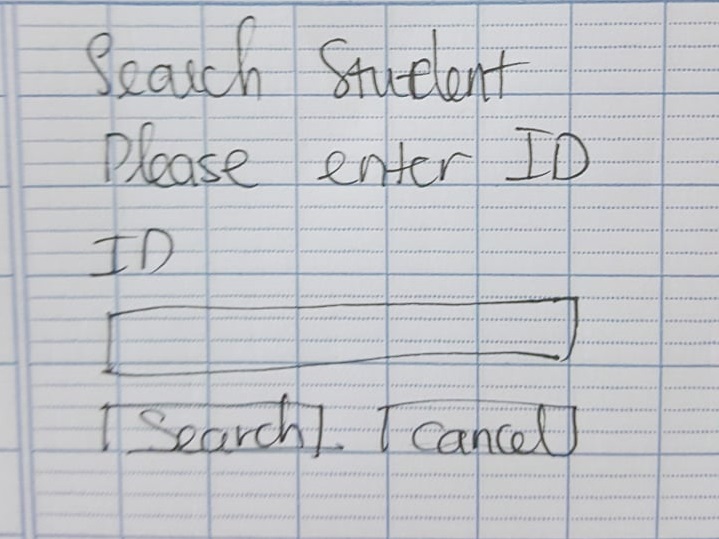 Search Student
Please enter ID
ID
Search Cancel